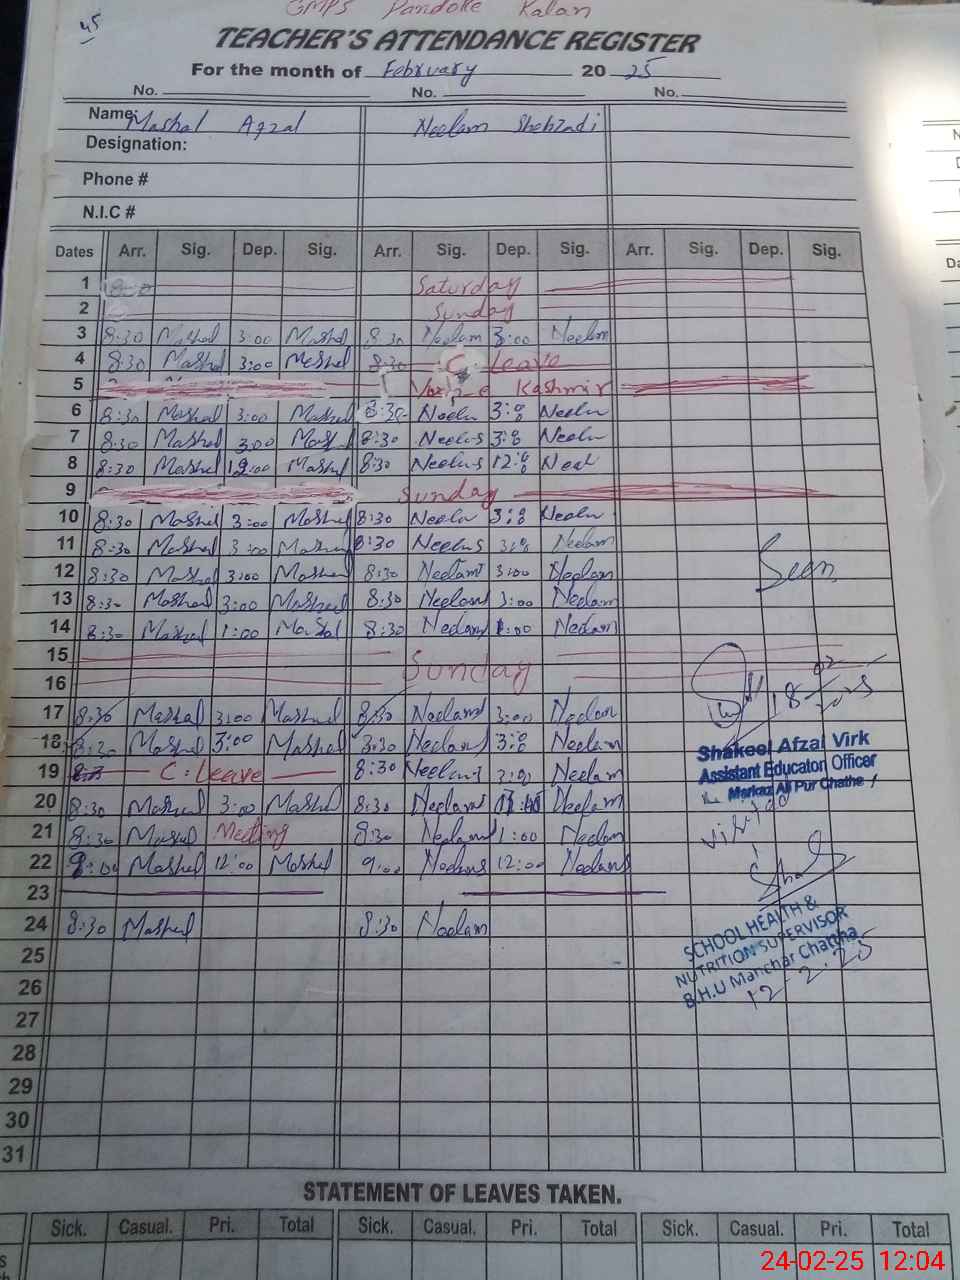 45
GMPS Pandoke Kalan
TEACHER'S ATTENDANCE REGISTER
For the month of February 2025
No. No. No.
Name: Mashal Afzal Neelam Shehzadi
Designation:
Phone #
N.I.C #
Dates Arr. Sig. Dep. Sig. Arr. Sig. Dep. Sig. Arr. Sig. Dep. Sig.
1 8:30 Saturday
2 Sunday
3 8:30 Mashal 3:00 Mashal 8:30 Neelam 3:00 Neelam
4 8:30 Mashal 3:00 Mashal 8:30 C. Leave
5 Kashmir
6 8:30 Mashal 3:00 Mashal 8:30 Neelam 3:00 Neelam
7 8:30 Mashal 3:00 Mashal 8:30 Neelam 3:00 Neelam
8 8:30 Mashal 12:00 Mashal 8:30 Neelam 12:00 Neelam
9 Sunday
10 8:30 Mashal 3:00 Mashal 8:30 Neelam 3:00 Neelam
11 8:30 Mashal 3:00 Mashal 8:30 Neelam 3:00 Neelam
12 8:30 Mashal 3:00 Mashal 8:30 Neelam 3:00 Neelam
Seen
13 8:30 Mashal 3:00 Mashal 8:30 Neelam 3:00 Neelam
14 8:30 Mashal 1:00 Mashal 8:30 Neelam 1:00 Neelam
15
16 Sunday
17 8:30 Mashal 3:00 Mashal 8:30 Neelam 3:00 Neelam
18 8:30 Mashal 3:00 Mashal 8:30 Neelam 3:00 Neelam
18-02-2025
Shakeel Afzal Virk
Assistant Educaton Officer
Markaz Ali Pur Chatha
19 8:30 C. Leave 8:30 Neelam 3:00 Neelam
20 8:30 Mashal 3:00 Mashal 8:30 Neelam Neelam
21 8:30 Mashal Meeting 8:30 Neelam 1:00 Neelam
visited
22 9:00 Mashal 12:00 Mashal 9:00 Neelam 12:00 Neelam
23
24 8:30 Mashal 8:30 Neelam
SCHOOL HEALTH &
NUTRITION SUPERVISOR
B.H.U Manchar Chattha
12-2-25
25
26
27
28
29
30
31
STATEMENT OF LEAVES TAKEN.
Sick. Casual. Pri. Total Sick. Casual. Pri. Total Sick. Casual. Pri. Total
24-02-25 12:04